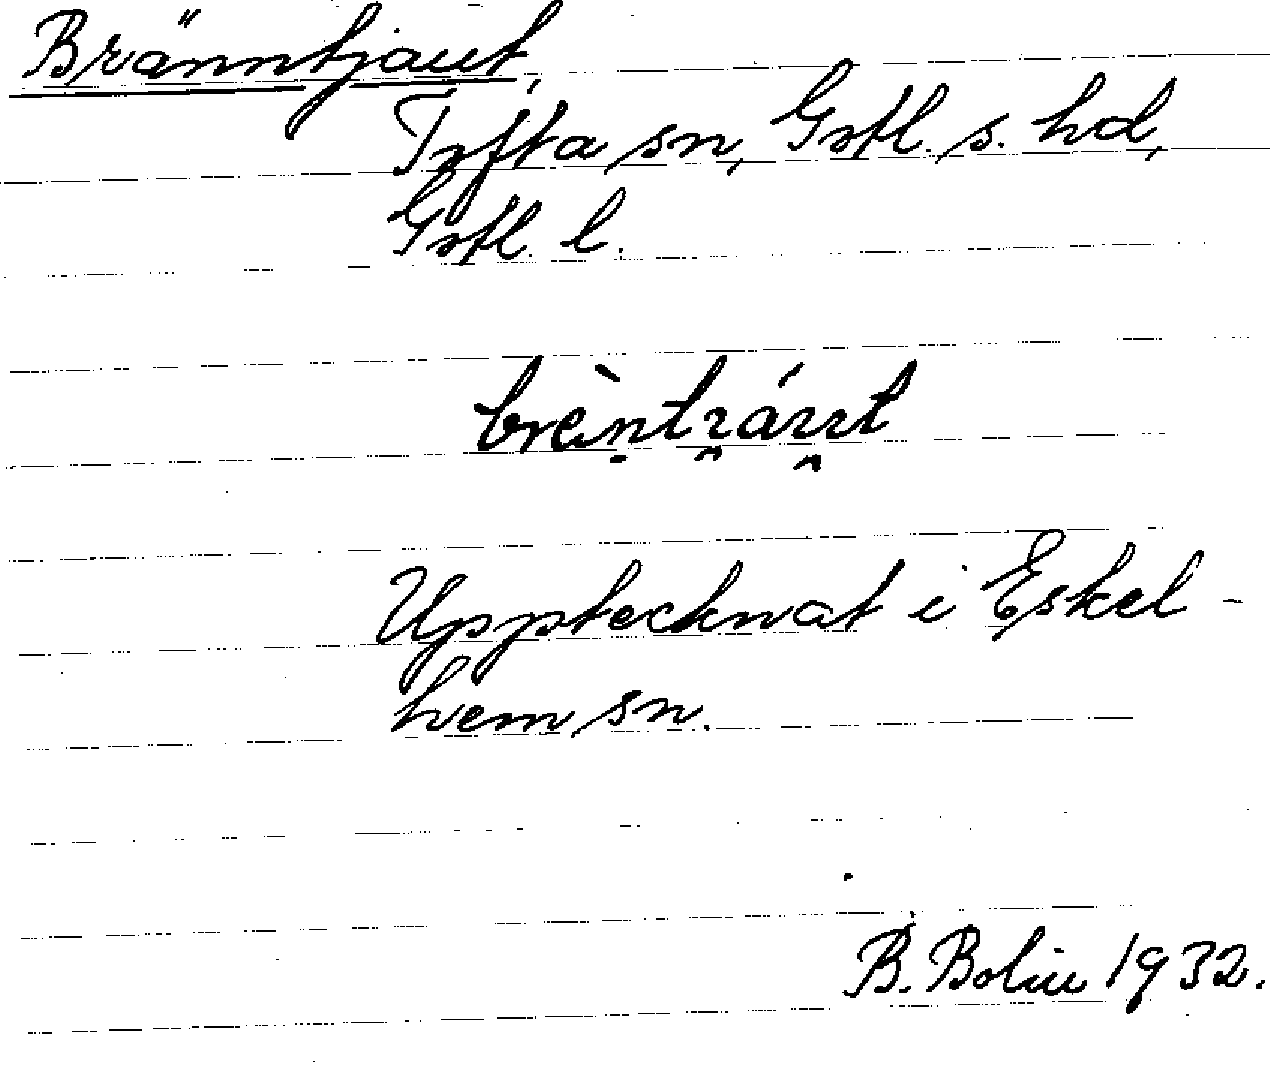 Bränntjaut,
Tofta sn, Gotl. s. hd,
Gotl. l.
Upptecknat i Eskel-
hem sn.
B. Bolin 1932.